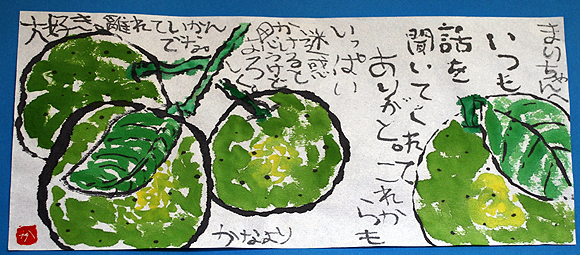 まいちゃんへ
いつも
話を
聞いてくれて
ありがと。これからも
いっぱい
迷惑
かけると
思うけど
よろしく
大好き 離れていかん
でね。
かなより
か